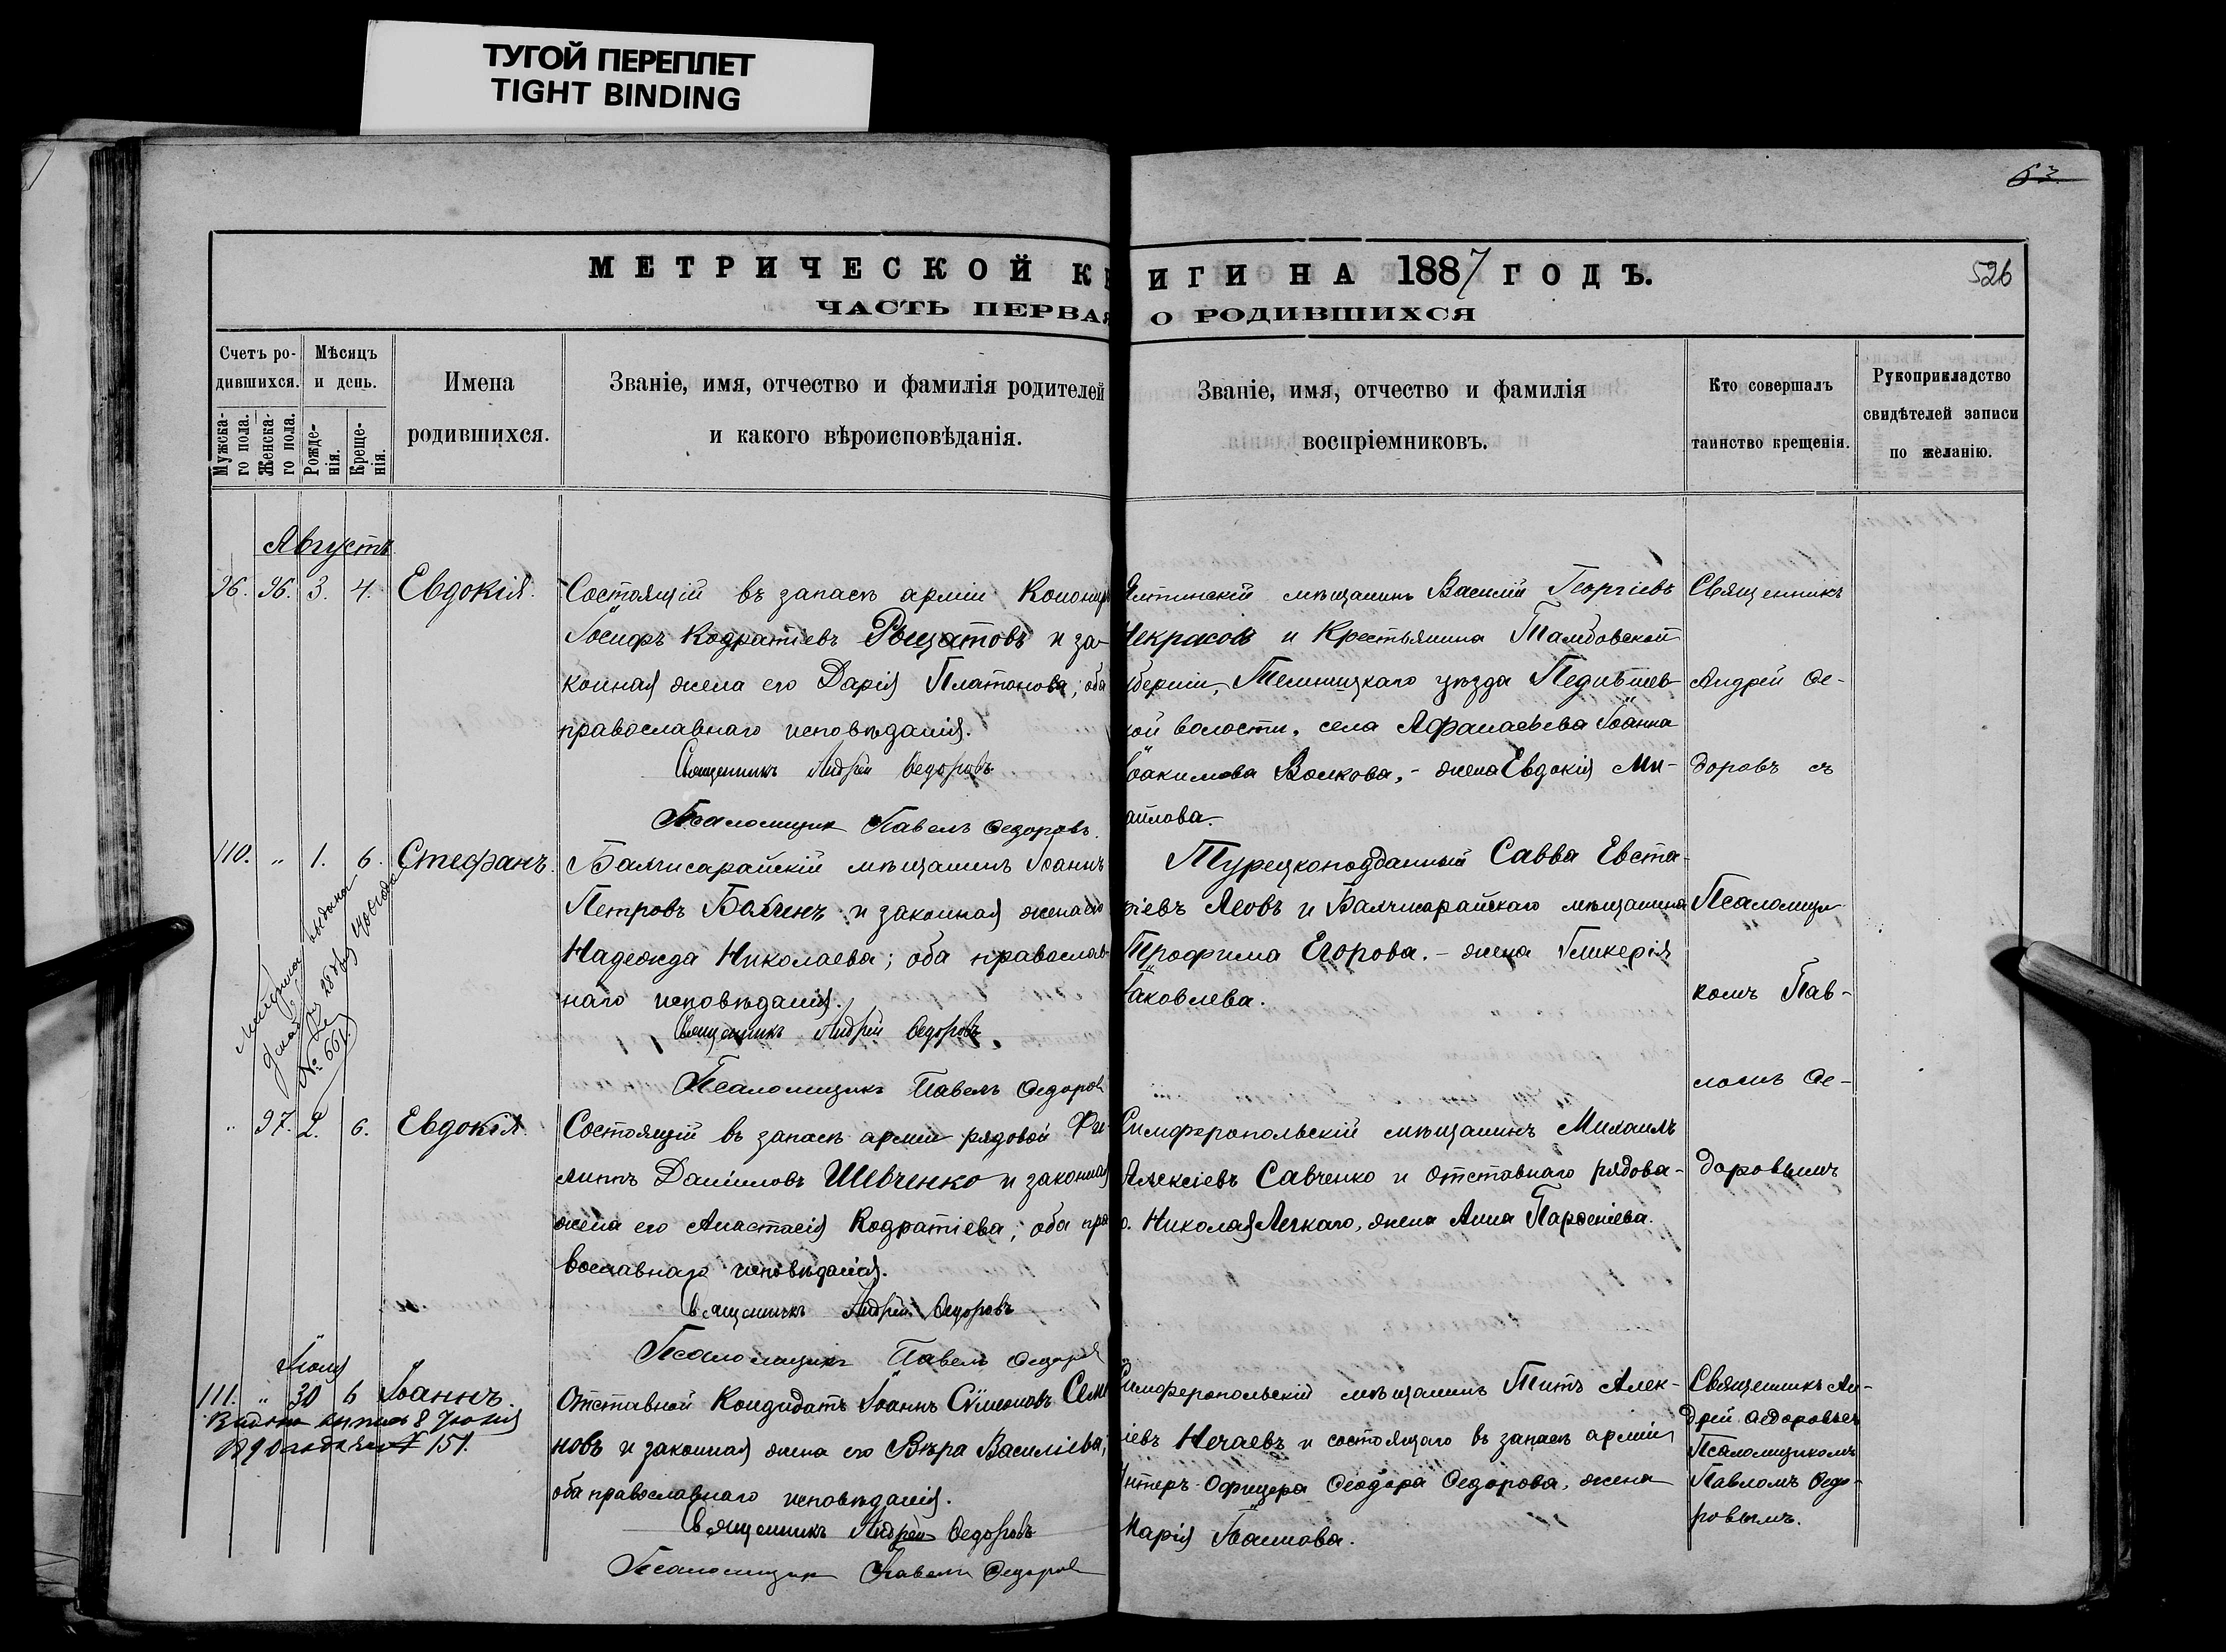 ТУГОЙ ПЕРЕПЛЕТ
TIGHT BINDING
63
МЕТРИЧЕСКОЙ К
ИГИ НА 1887 ГОДЪ.
526
ЧАСТЬ ПЕРВАЯ
О РОДИВШИХСЯ
Счетъ ро-
дившихся.
Мужска-
го пола.
Женска-
го пола.
Мѣсяцъ
и день.
Рожде-
нія.
Креще-
нія.
Имена
родившихся.
Званіе, имя, отчество и фамилія родителей
и какого вѣроисповѣданія.
Званіе, имя, отчество и фамилія
воспріемниковъ.
Кто совершалъ
таинство крещенія.
Рукоприкладство
свидѣтелей записи
по желанію.
Августъ
96. 96. 3. 4. Евдокія.
Состоящій въ запасѣ арміи
Іосифъ Кодратіевъ Рощатовъ и за-
конная жена его Дарія Платонова; оба
православнаго исповѣданія.
Священникъ Андрей Ѳедоровъ
Псаломщик Павелъ Ѳедоровъ.
Ялтинскій мѣщанинъ Василій Георгіевъ
Некрасовъ и Крестьянина Тамбовской
берніи, уѣзда
кой волости, села Іоанна
Іоакимова Волкова, - жена Евдокія Ми-
аилова.
110. „ 1. 6. Стефанъ.
Бахчисарайскій мѣщанинъ Іоаннъ
Петровъ и законная жена его
Надежда Николаева; оба православ-
наго исповѣданія.
Священникъ Андрей Ѳедоровъ
Псаломщикъ Павелъ Ѳедоров
Турецкоподданный Савва Евста-
ѳіевъ и Бахчисарайскаго мѣщанина
Трофима Егорова. - жена Гликерія
Іаковлева.
Метрика выдана
28
№ 661.
„ 97. 2. 6. Евдокія.
Состоящій въ запасѣ арміи рядовой Фи-
липпъ Даніиловъ Шевченко и законная
жена его Анастасія Кодратіева; оба пра
вославнаго исповѣданія.
Священникъ Андрей Ѳедоровъ
Псаломщикъ Павелъ Ѳедоров
Симферопольскій мѣщанинъ Михаилъ
Алексіевъ Савченко и отставнаго рядова-
о. Николая Легкаго, жена Анна Парѳеніева.
Священникъ
Андрей Ѳе-
доровъ съ
Псаломщи-
комъ Пав-
ломъ Ѳе-
доровымъ
Іюля
111. „ 30 6 Іоаннъ.
8
151.
Отставной Кондидатъ Іоаннъ Сѵмеоновъ Семе
новъ и законная жена его Вѣра Василіева;
оба православнаго исповѣданія.
Священникъ Андрей Ѳедоровъ
Псаломщик Павелъ Ѳедоров
Симферопольскій мѣщанинъ Титъ Алек-
іевъ Нечаевъ и состоящаго въ запасѣ арміи
Унтеръ-Офицера Ѳеодора Ѳедорова, жена
Марія Іоаннова.
Священникъ Ан-
дрей Ѳедоровъ съ
Псаломщикомъ
Павломъ Ѳедо-
ровымъ.